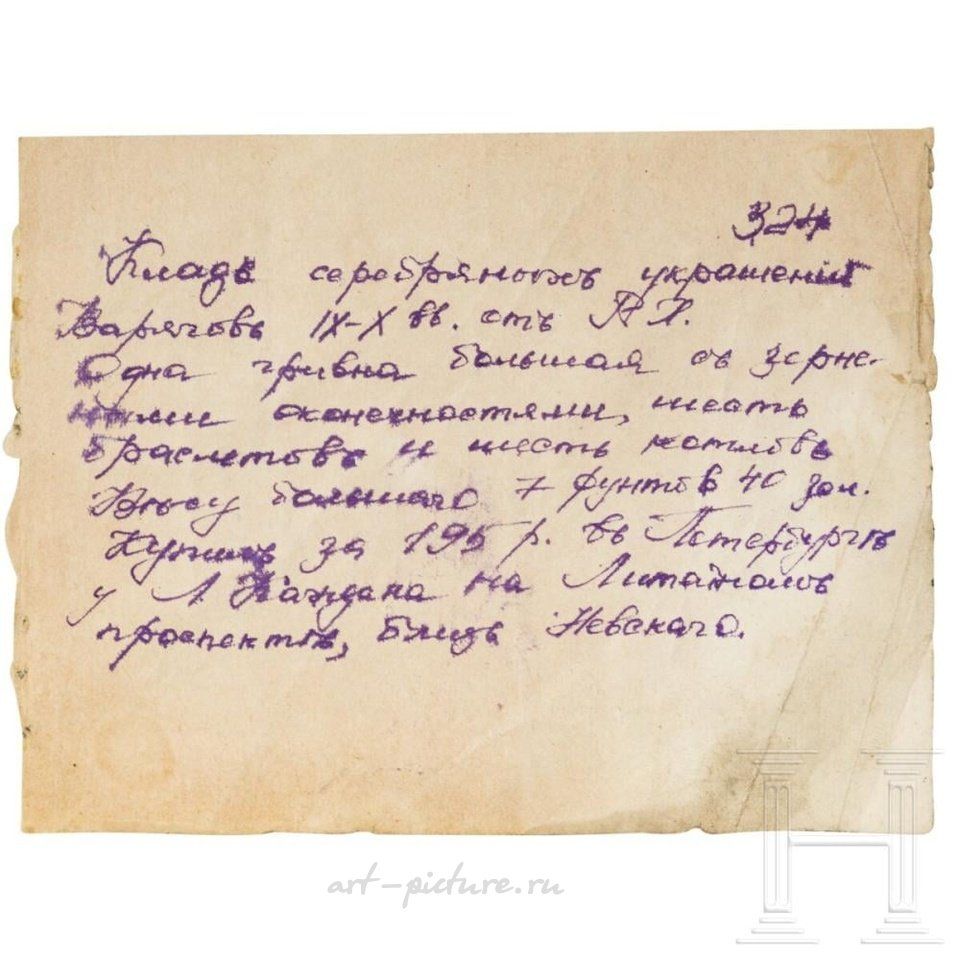 324
Кладъ серебряныхъ украшений
Варяговъ IX-X вв. отъ Р. Х.
Одна гривна большая съ зерне-
ными оконечностями, шесть
браслетовъ и шесть
Вѣсу большого 7 фунтов 40 зол.
Купилъ за 195 р. въ Петербургѣ
у Л. Каждана на Литейномъ
проспектѣ, близъ Невскаго.
art-picture.ru
H